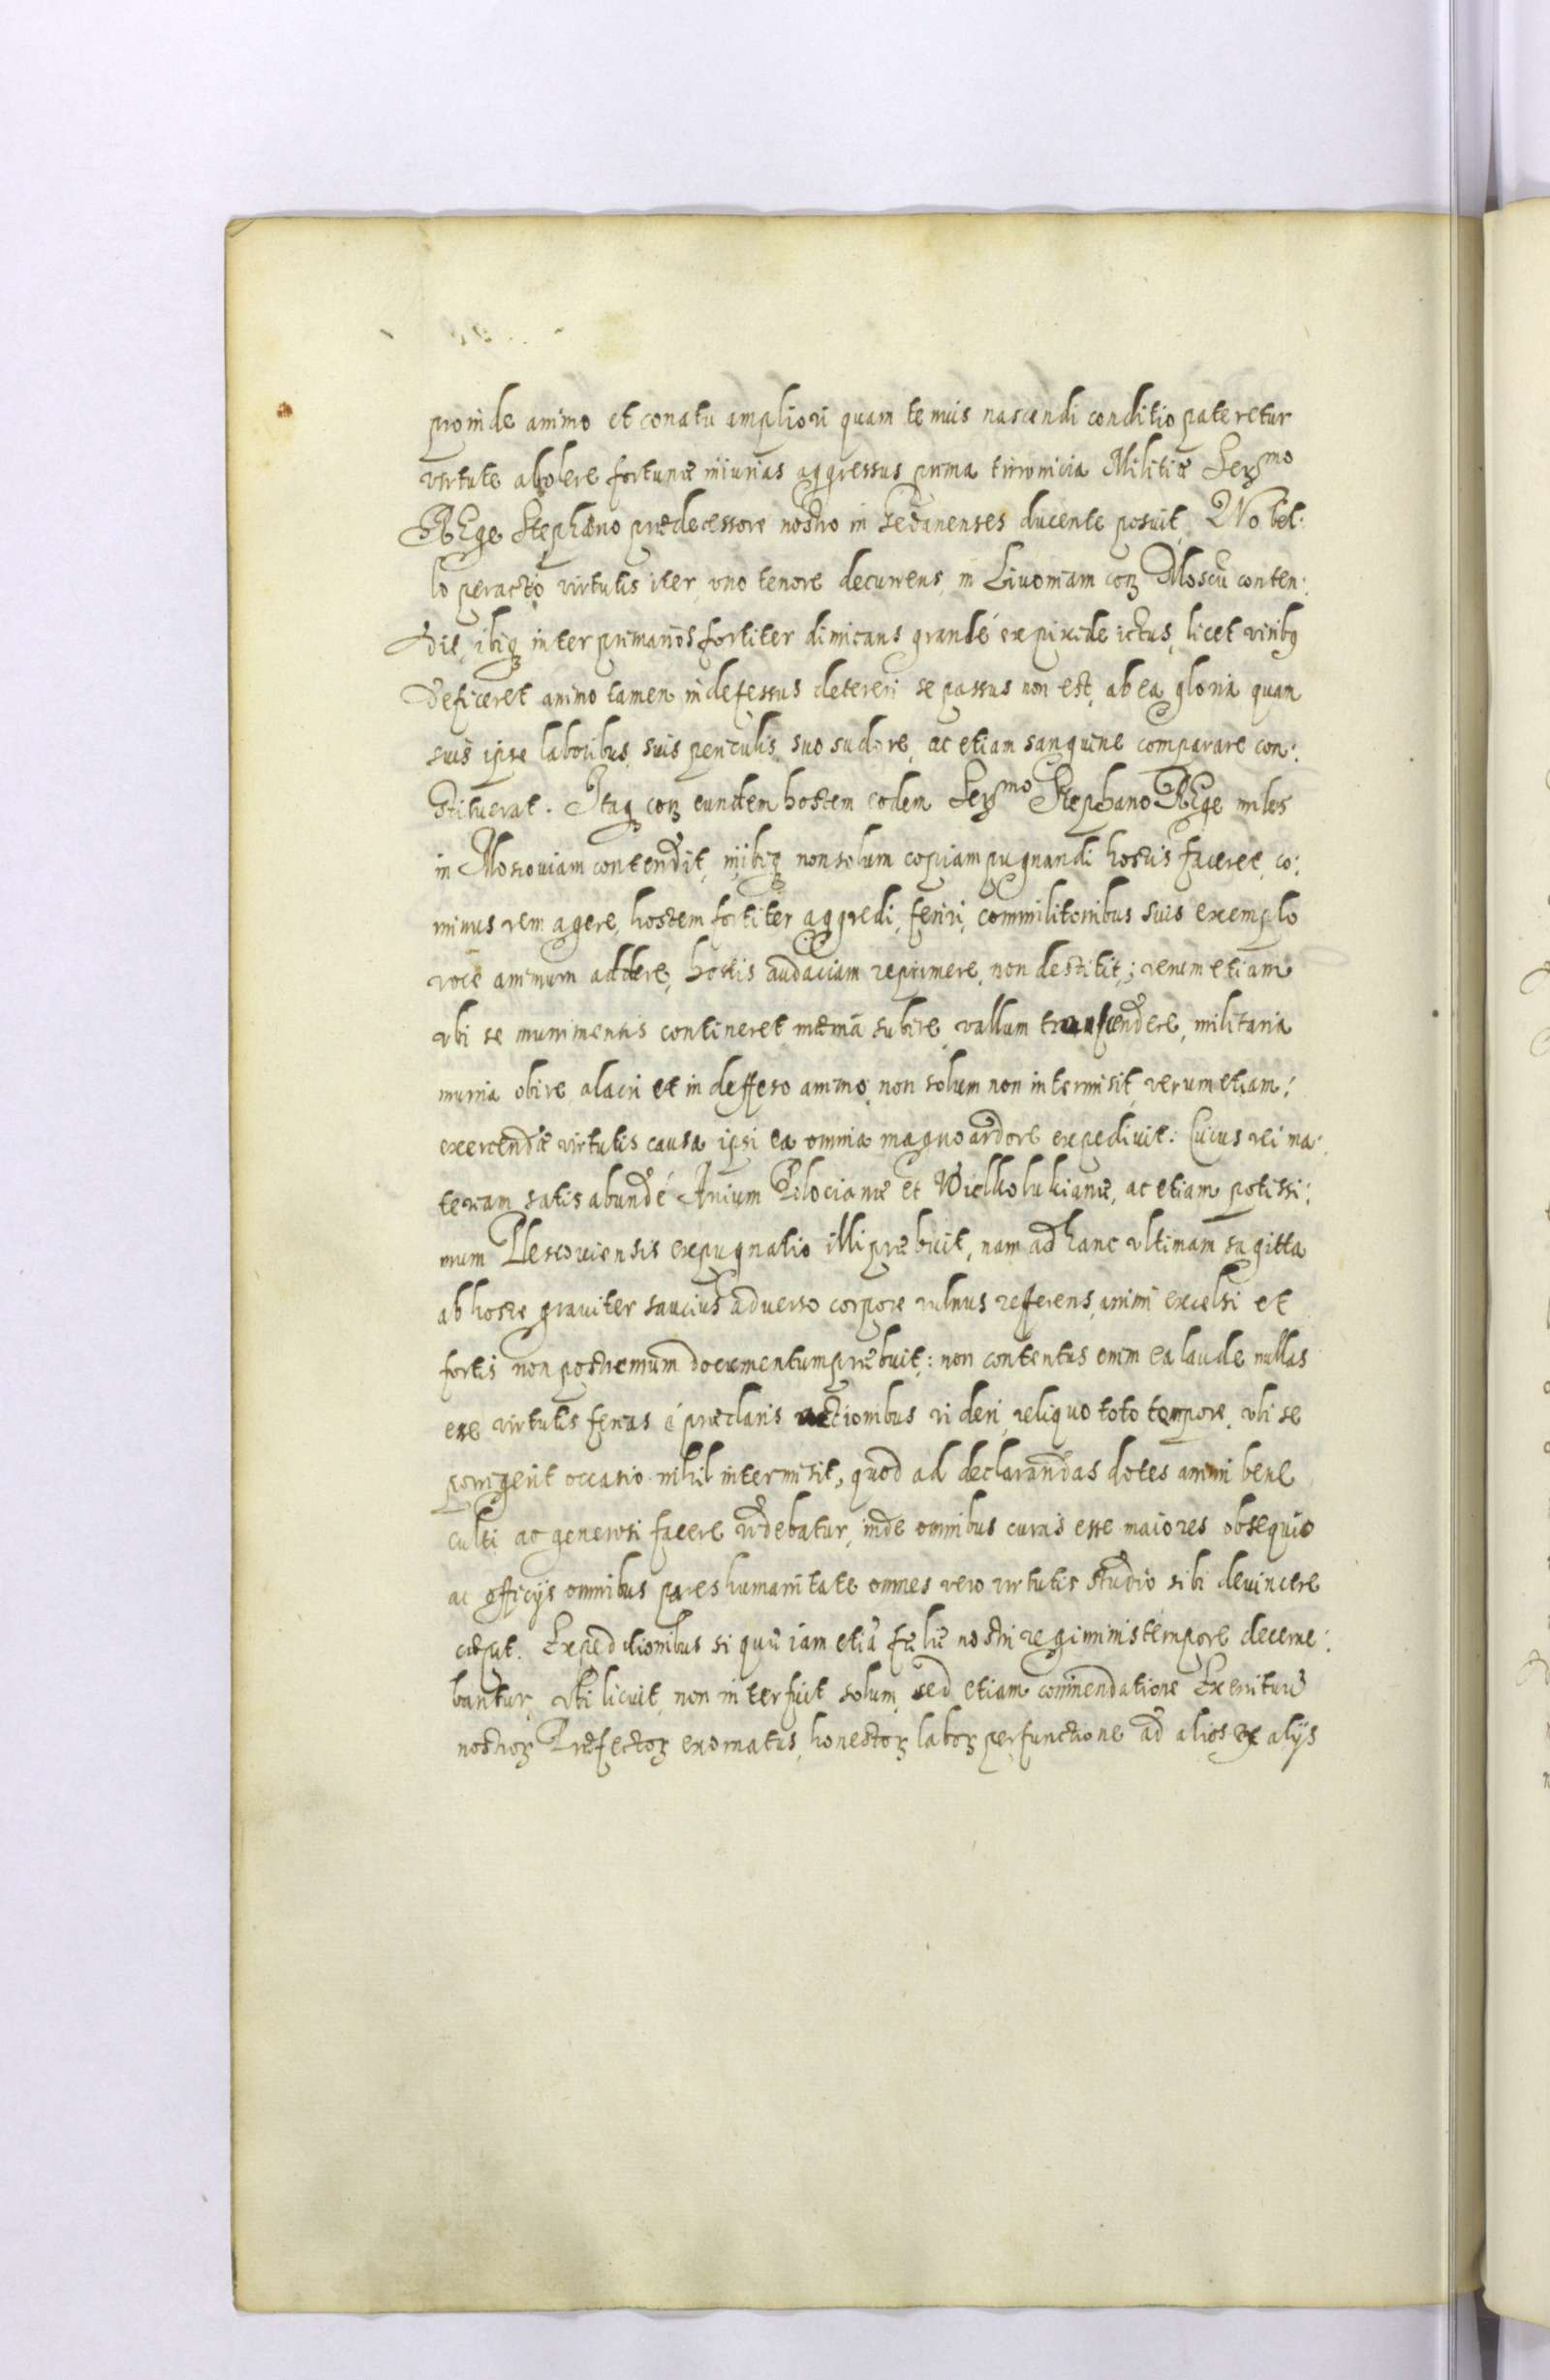 proinde animo et conatu ampliori quam tenuis nascendi conditio pateretur
virtute abolere fortunæ iniurias aggressus prima tirronicia Militiæ Serᵐᵒ
REge Stephano prædecessore nostro in Gedanenses ducente posuit, Quo bel:
lo peracto virtutis iter, uno tenore decurrens, in Livoniam coꝫ Moscū conten:
dit, ibiqꝫ inter primarios fortiter dimicans grandé ex pixide ictus, licet viribꝫ
deficeret animo tamen indefessus deterreri se passus non est, ab ea gloria quam
suis ipse laboribus, suis periculis, suo sudore, ac etiam sanguine comparare con:
stituerat. Itaqꝫ coꝫ eundem hostem eodem Serᵐᵒ Stephano REge miles
in Moscoviam contendit, ibiqꝫ non solum copiam pugnandi hostis faceret, co:
minus rem agere, hostem fortiter aggredi, feriri, commilitonibus suis exemplo
voce animum addere, hostis audaciam reprimere, non destitit; verum etiam
ubi se munimentis contineret mœnia subire, vallum transcendere, militaria
munia obire alacri et indeffeso animo, non solum non intermisit, verum etiam:
exercendæ virtutis causa ipsi ea omnia magno ardore expedivit: Cuius rei ma:
teriam satis abundé Arcium Polocianæ et Wielkolukianæ, ac etiam potissi:
mum Plescoviensis expugnatio illi præbuit, nam ad hanc ultimam sagitta
ab hoste graviter saucius adverso corpore vulnus referens, animi excelsi et
fortis non postremum documentum præbuit: non contentus enim ea laude nullas
esse virtutis ferias á præclaris actionibus videri, reliquo toto tempore, ubi se
porrigerit occasio nihil intermisit, quod ad declarandas dotes animi bene
culti ac generosi facere videbatur, inde omnibus curais esse maiores obsequio
ac officijs omnibus pares humanitate omnes vero virtutis studio sibi devincere
cæpit. Expeditionibus si quæ iam etiā fœlic nostri regiminis tempore decerne:
bantur, ubi licuit, non interfuit solum, sed etiam commendatione Exercituū
nostroꝝ Præfectoꝝ exornatus, honestoꝝ laboꝝ perfunctione ad alios ex alijs